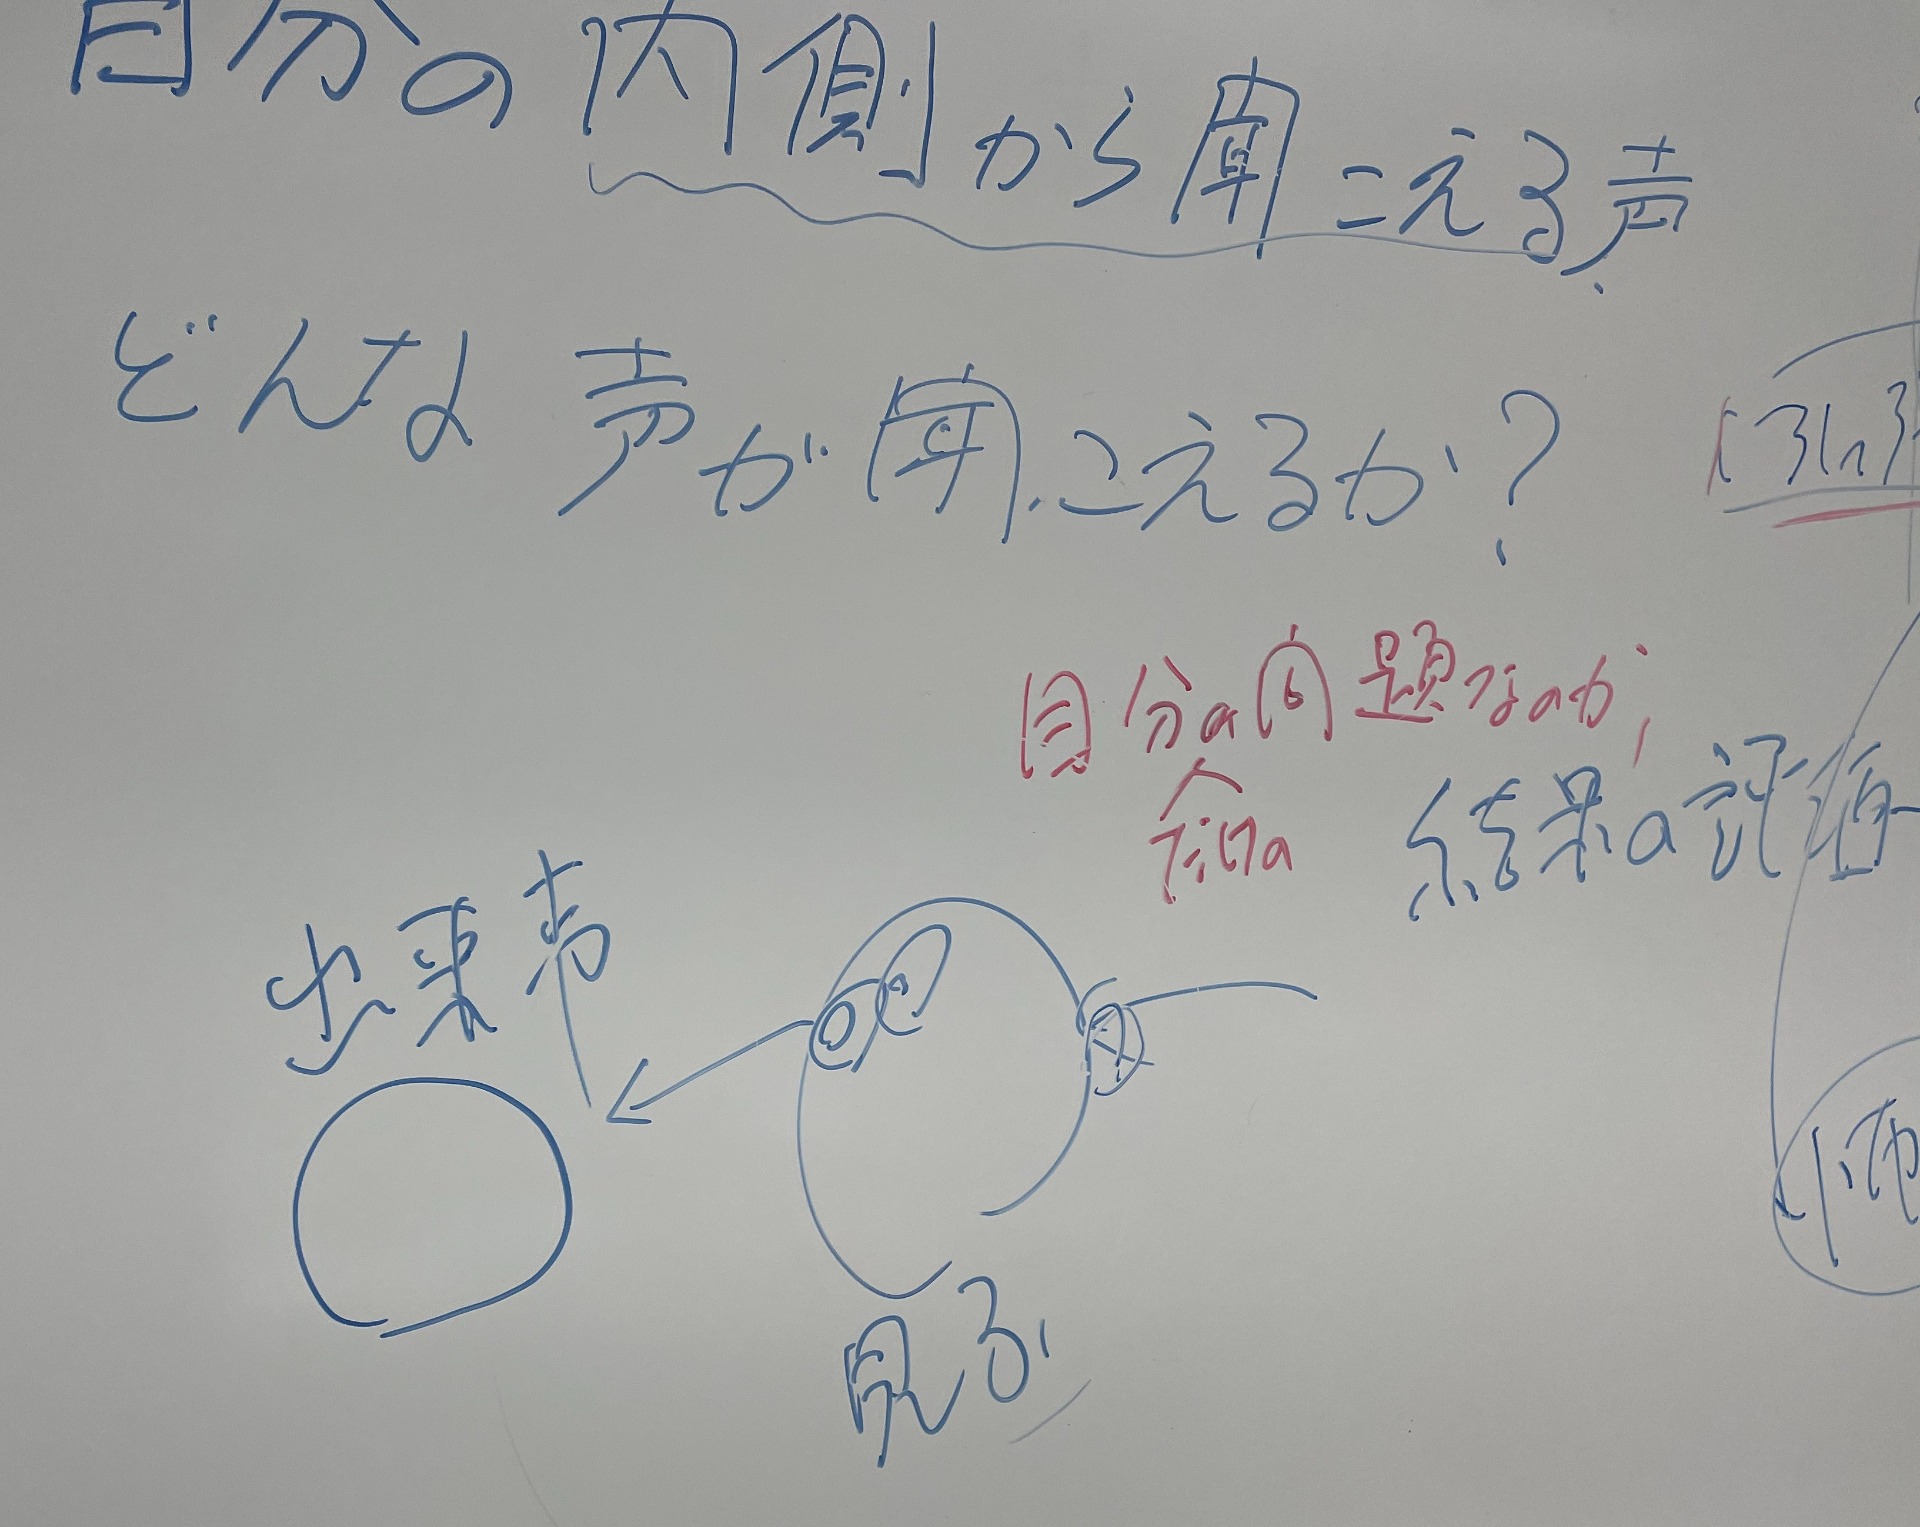 自分の内側から聞こえる声
どんな声が聞こえるか?
自分の問題なのか,
結果の評価
出来事
見る